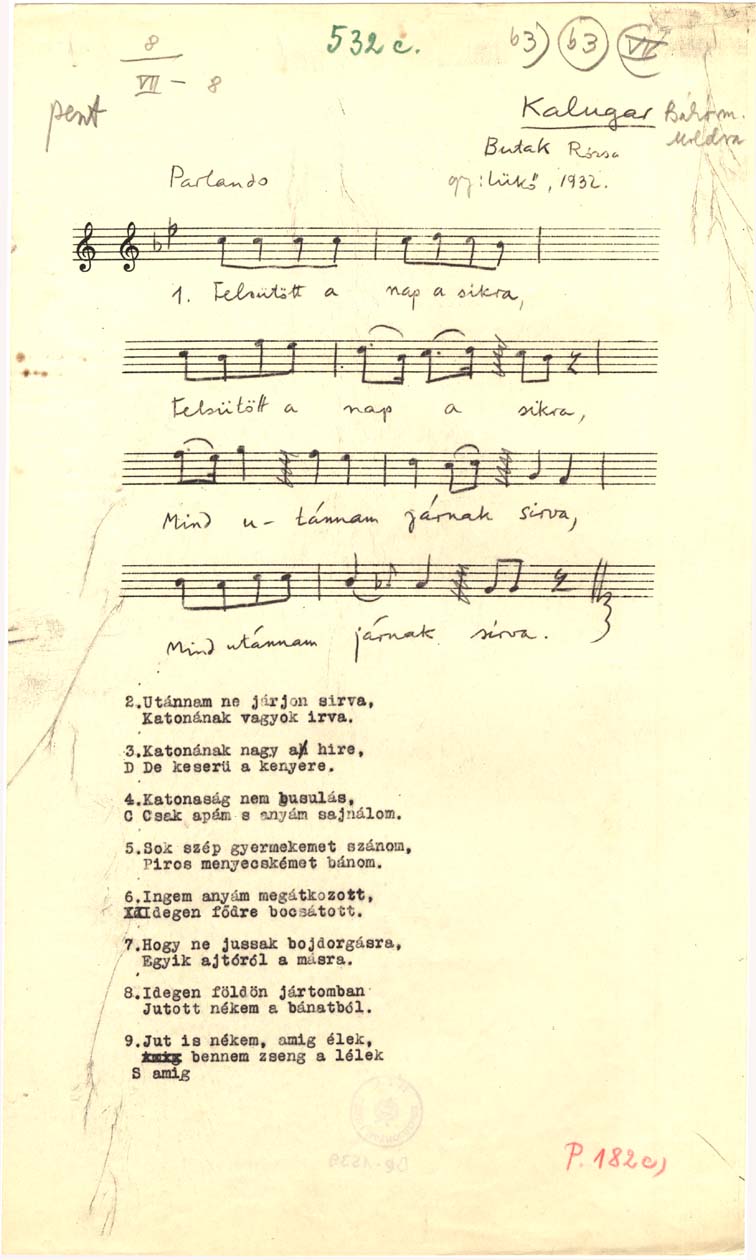 8
VII - 8
532 c.
b3) b3 VII
pent
Kalugar
Butak Rózsa
gy: Lükő, 1932.
Parlando
1. Felsütött a nap a sikra,
Felsütött a nap a sikra,
Mind u- tánnam járnak sirva,
Mind utánnam járnak sirva.
2.Utánnam ne járjon sirva,
Katonának vagyok irva.
3.Katonának nagy a hire,
D De keserü a kenyere.
4.Katonaság nem busulás,
C Csak apám s anyám sajnálom.
5.Sok szép gyermekemet szánom,
Piros menyecskémet bánom.
6.Ingem anyám megátkozott,
Idegen fődre bocsátott.
7.Hogy ne jussak bojdorgásra,
Egyik ajtóról a másra.
8.Idegen földön jártomban
Jutott nékem a bánatból.
9.Jut is nékem, amig élek,
amig bennem zseng a lélek
S amig
P. 182c)